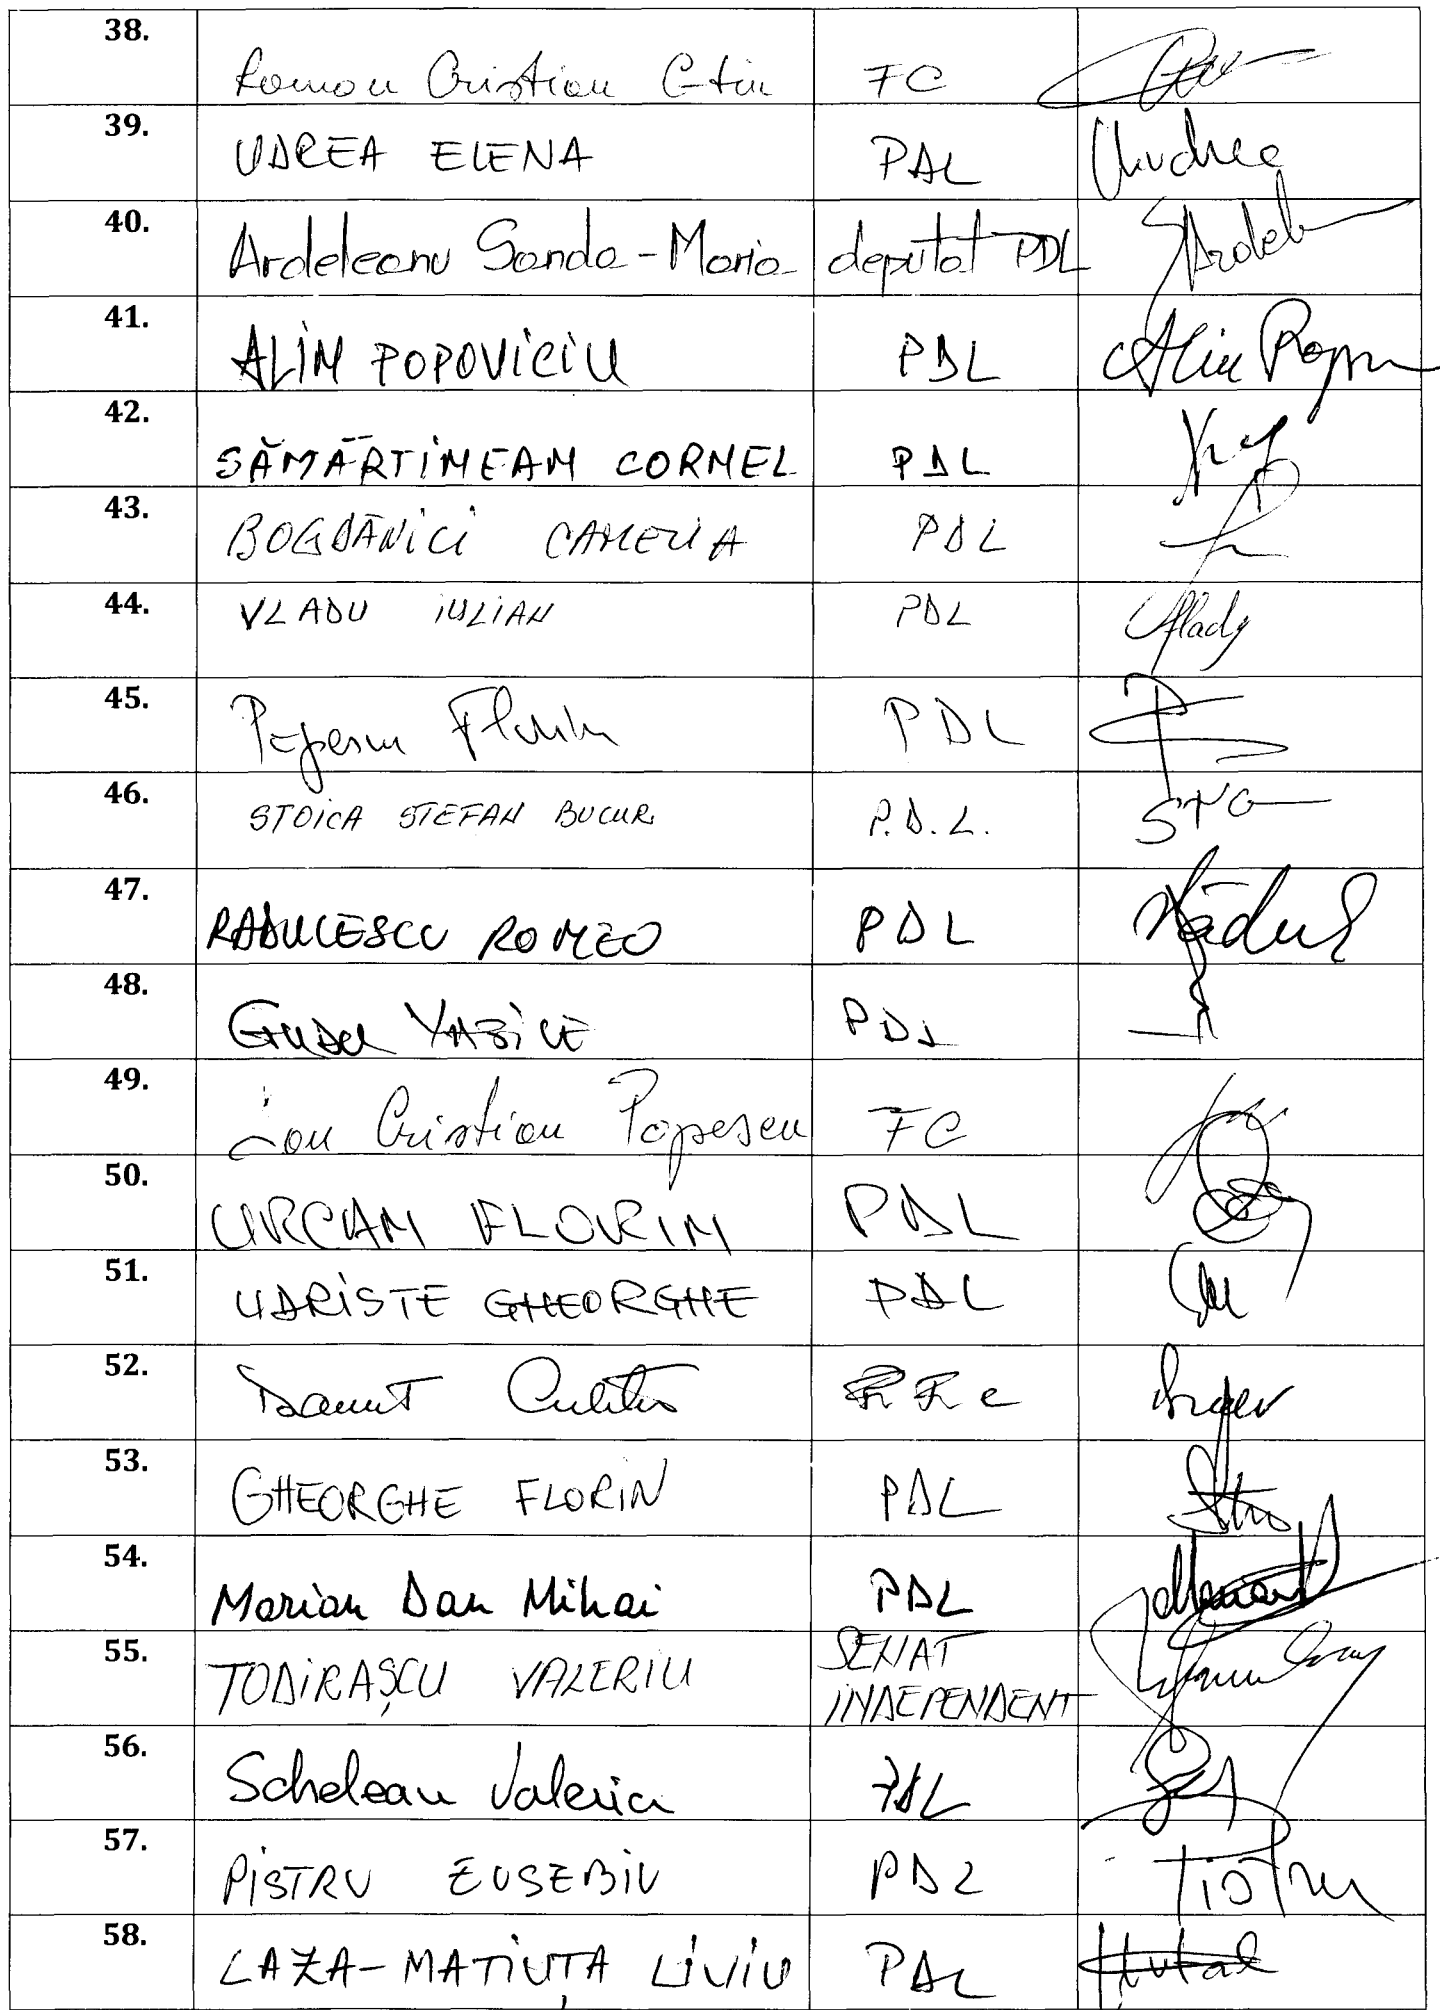 38. Roman Cristian C-tin FC
39. UDREA ELENA PDL Eudrea
40. Ardeleanu Sanda-Maria deputat PDL SArdel
41. ALIN POPOVICIU PDL Alin Popov
42. SĂMĂRTINEAN CORNEL PDL
43. BOGDĂNICI CAMELIA PDL
44. VLADU IULIAN PDL Vladu
45. Popescu Florin PDL
46. STOICA STEFAN BUCUR P.D.L.
47. RADULESCU ROMEO PDL Rădul
48. GUDU VASILE PDL
49. Ion Cristian Popescu FC
50. URCAN FLORIN PDL
51. UDRISTE GHEORGHE PDL
52. Danut Culetu FC
53. GHEORGHE FLORIN PDL
54. Marian Dan Mihai PDL
55. TODIRAȘCU VALERIU SENAT
INDEPENDENT
56. Schelean Valeria PDL
57. PISTRU EUSEBIU PDL Pistru
58. LAZA-MATIUȚA LIVIU PDL